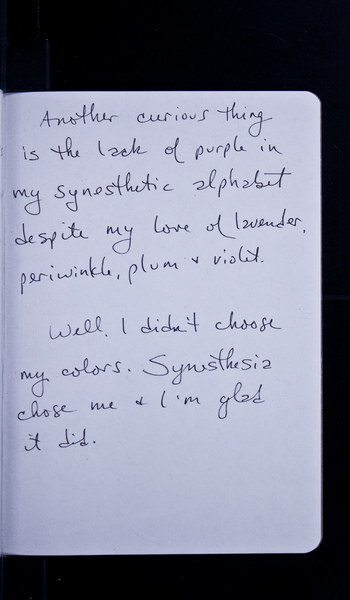 Another curious thing
is the lack of purple in
my synesthetic alphabet
despite my love of lavender,
periwinkle, plum & violet.
Well. I didn't choose
my colors. Synesthesia
chose me & I'm glad
it did.